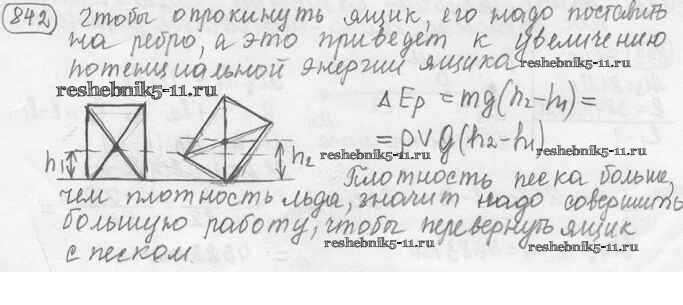 842 Чтобы опрокинуть ящик, его надо поставить
на ребро, а это приведет к увеличению
потенциальной энергии ящика
reshebnik5-11.ru
reshebnik5-11.ru
ΔEp = mg(h2-h1) =
= ρVg(h2-h1)
reshebnik5-11.ru
reshebnik5-11.ru
h1
h2
Плотность песка больше,
чем плотность льда, значит надо совершить
reshebnik5-11.ru
большую работу, чтобы перевернуть ящик
reshebnik5-11.ru
с песком.